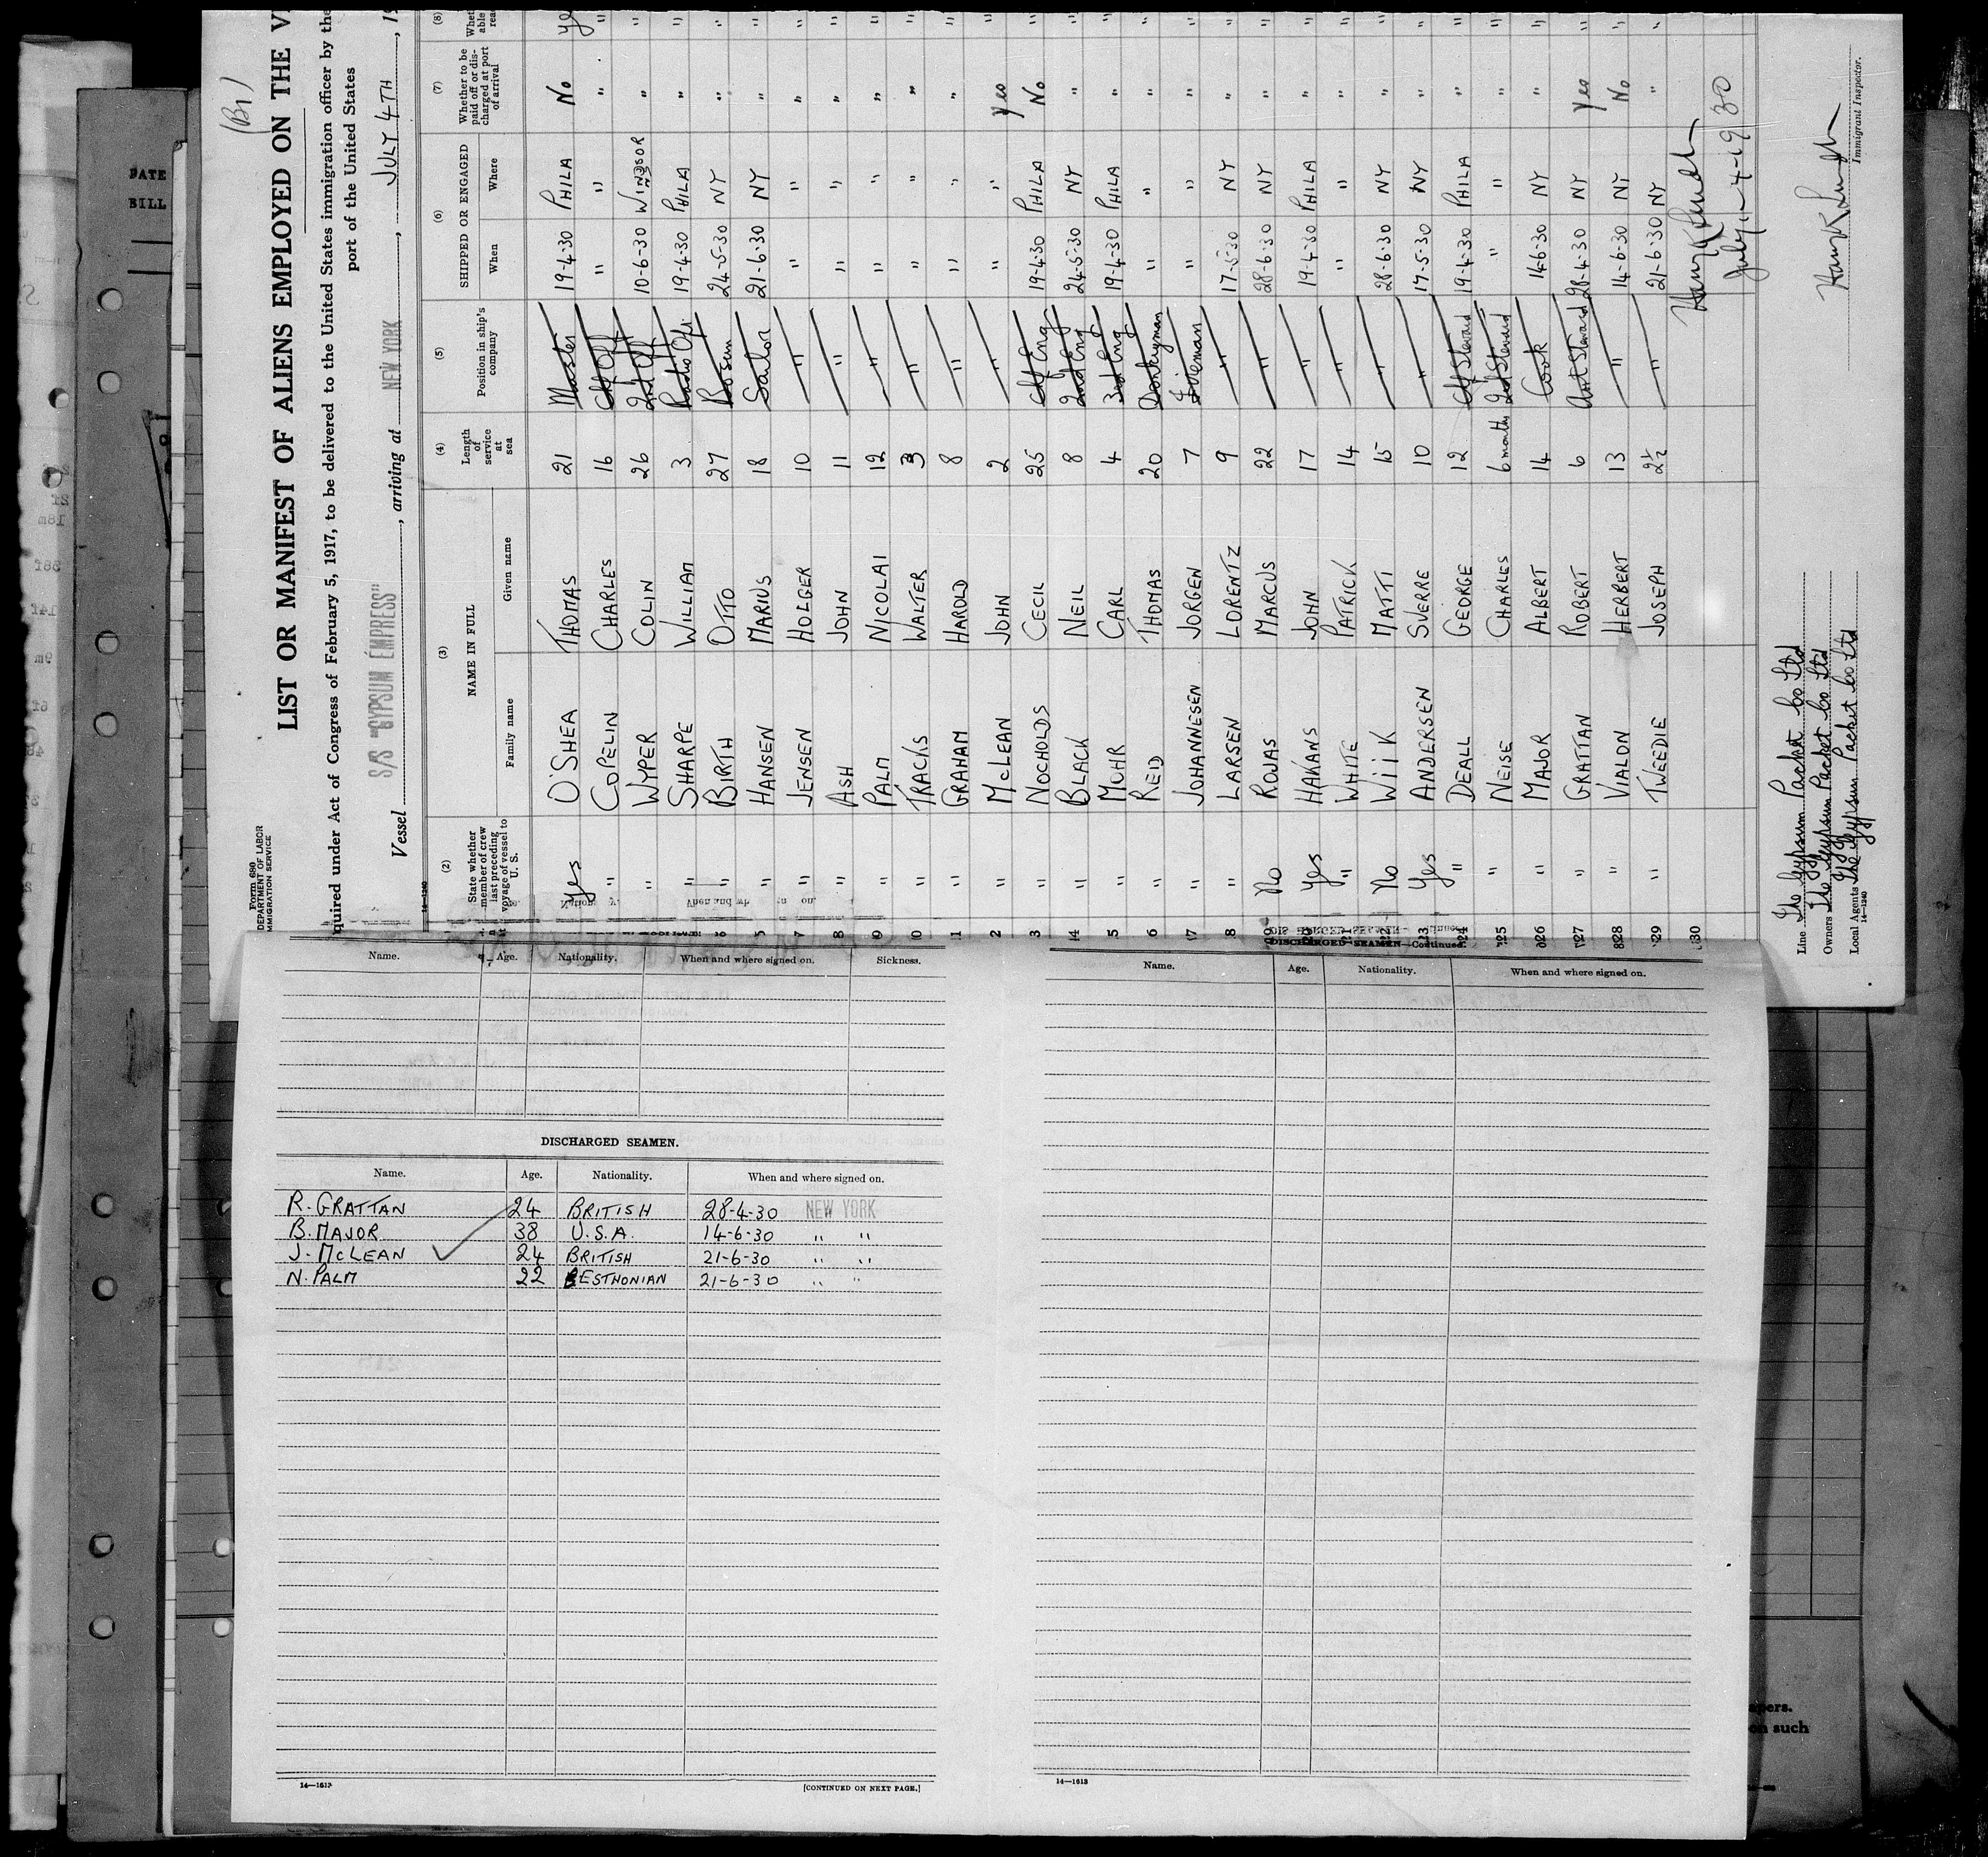 (B1)
Form 680
DEPARTMENT OF LABOR
IMMIGRATION SERVICE
LIST OR MANIFEST OF ALIENS EMPLOYED ON THE
quired under Act of Congress of February 5, 1917, to be delivered to the United States immigration officer by the
port of the United States
Vessel S/S "GYPSUM EMPRESS", arriving at NEW YORK, JULY 4TH, 19
14-1240
(2) (3) (4) (5) (6) (7) (8)
State whether member of crew last preceding voyage of vessel to U. S. NAME IN FULL Length of service at sea Position in ship's company SHIPPED OR ENGAGED Whether to be paid off or discharged at port of arrival
Family name Given name When Where
Yes O'SHEA THOMAS 21 Master 19-4-30 PHILA No
" COPELIN CHARLES 16 Chf Off " " " "
" WYPER COLIN 26 2nd Off 10-6-30 WINDSOR " "
" SHARPE WILLIAM 3 Radio Opr 19-4-30 PHILA " "
" BIRTH OTTO 27 Bosun 24-5-30 NY " "
" HANSEN MARIUS 18 Sailor 21-6-30 NY " "
7 " JENSEN HOLGER 10 " " " " "
8 " ASH JOHN 11 " " " " "
9 " PALM NICOLAI 12 " " " " "
0 " TRACKS WALTER 3 " " " " "
1 " GRAHAM HAROLD 8 " " " " "
2 " McLEAN JOHN 2 " " " Yes "
3 " NOCHOLDS CECIL 25 Chf Eng 19-4-30 PHILA No "
14 " BLACK NEIL 8 2nd Eng 24-5-30 NY " "
5 " MOHR CARL 4 3rd Eng 19-4-30 PHILA " "
6 " REID THOMAS 20 Donkeyman " " " "
7 " JOHANNESEN JORGEN 7 Fireman " " " "
8 " LARSEN LORENTZ 9 " 17-5-30 NY " "
No ROJAS MARCUS 22 " 28-6-30 NY " "
Yes HAKANS JOHN 17 " 19-4-30 PHILA " "
" WHITE PATRICK 14 " " " " "
No WIIK MATTI 15 " 28-6-30 NY " "
23 Yes ANDERSEN SVERRE 10 " 17-5-30 NY " "
24 " DEALL GEORGE 12 Chf Steward 19-4-30 PHILA " "
25 " NEISE CHARLES 6 months 2nd Steward " " " "
26 " MAJOR ALBERT 14 Cook 14-6-30 NY " "
27 " GRATTAN ROBERT 6 Asst Steward 28-4-30 NY Yes "
28 " VIALON HERBERT 13 " 14-6-30 NY No "
29 " TWEEDIE JOSEPH 2½ " 21-6-30 NY " "
30
July 4-1930
Line The Gypsum Packet Co Ltd
Owners The Gypsum Packet Co Ltd
Local Agents The Gypsum Packet Co Ltd
14-1240
Immigrant Inspector.
Name. Age. Nationality. When and where signed on. Sickness.
DISCHARGED SEAMEN.
Name. Age. Nationality. When and where signed on.
R. GRATTAN 24 BRITISH 28-4-30 NEW YORK
B. MAJOR 38 U.S.A. 14-6-30 " "
J. McLEAN 24 BRITISH 21-6-30 " "
N. PALM 22 ESTHONIAN 21-6-30 " "
14—1613
[CONTINUED ON NEXT PAGE.]
DISCHARGED SEAMEN—Continued
Name. Age. Nationality. When and where signed on.
14—1613
DATE
BILL
apers.
on such